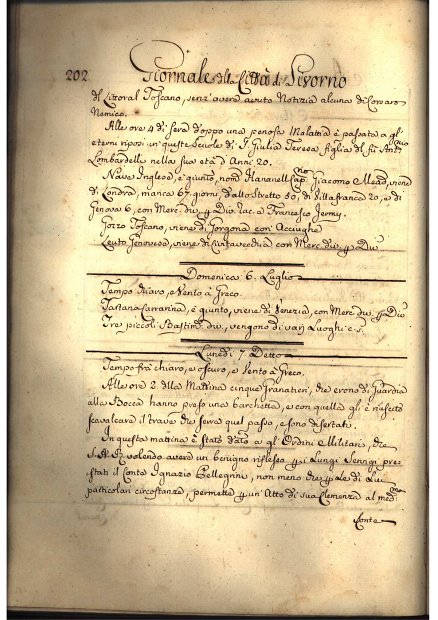 202 Giornale della Città di Livorno
del Littoral Toscano, senz'avere avuto Notizia alcuna di Corsaro
Nemico.
Alle ore 4 di sera doppo una penosa Malattia è passata a gl'
eterni riposi in queste Scuole di S. Giulia Teresa figlia del fù Ant.
Lombardelli nella sua età d'Anni 20.
Nave Inglese, è giunta, nom.ª Cap.no Giacomo Mead, viene
di Londra, manca 67. giorni, dallo Stretto 30, di Villafranca 20, e di
Genova 6, con Merc. div. p. Div. rac. a Francesco Jermy.
Gozzo Toscano, viene di Gorgona con Acciughe
Leuto Genovese, viene di Civitavecchia con Merc. div. p. Div.
Domenica 6. Luglio
Tempo chiaro, e Vento à Greco.
Tartana è giunta, viene di Venezia, con Merc. div. p. Div.
Tre piccoli Bastim. div., vengono di varj Luoghi c. s.
Lunedì 7. Detto
Tempo frà chiaro, e oscuro, e Vento à Greco.
Alle ore 2. della Mattina cinque Granatieri, che erono di Guardia
alla Bocca hanno preso una barchetta, e con quella gl'è riuscito
scavalcare il trave che serra quel passo, e sono disertati.
In questa mattina è stato dato a gl'Ordini Militari, che
S. A. R. volendo avere un benigno riflesso p. i Lungi Servigi pre-
stati il Conte Ignazio Pellegrini, non meno che p. le di Lui
particolari circostanze, permette p. un'Atto di sua Clemenza al med.mo
Conte